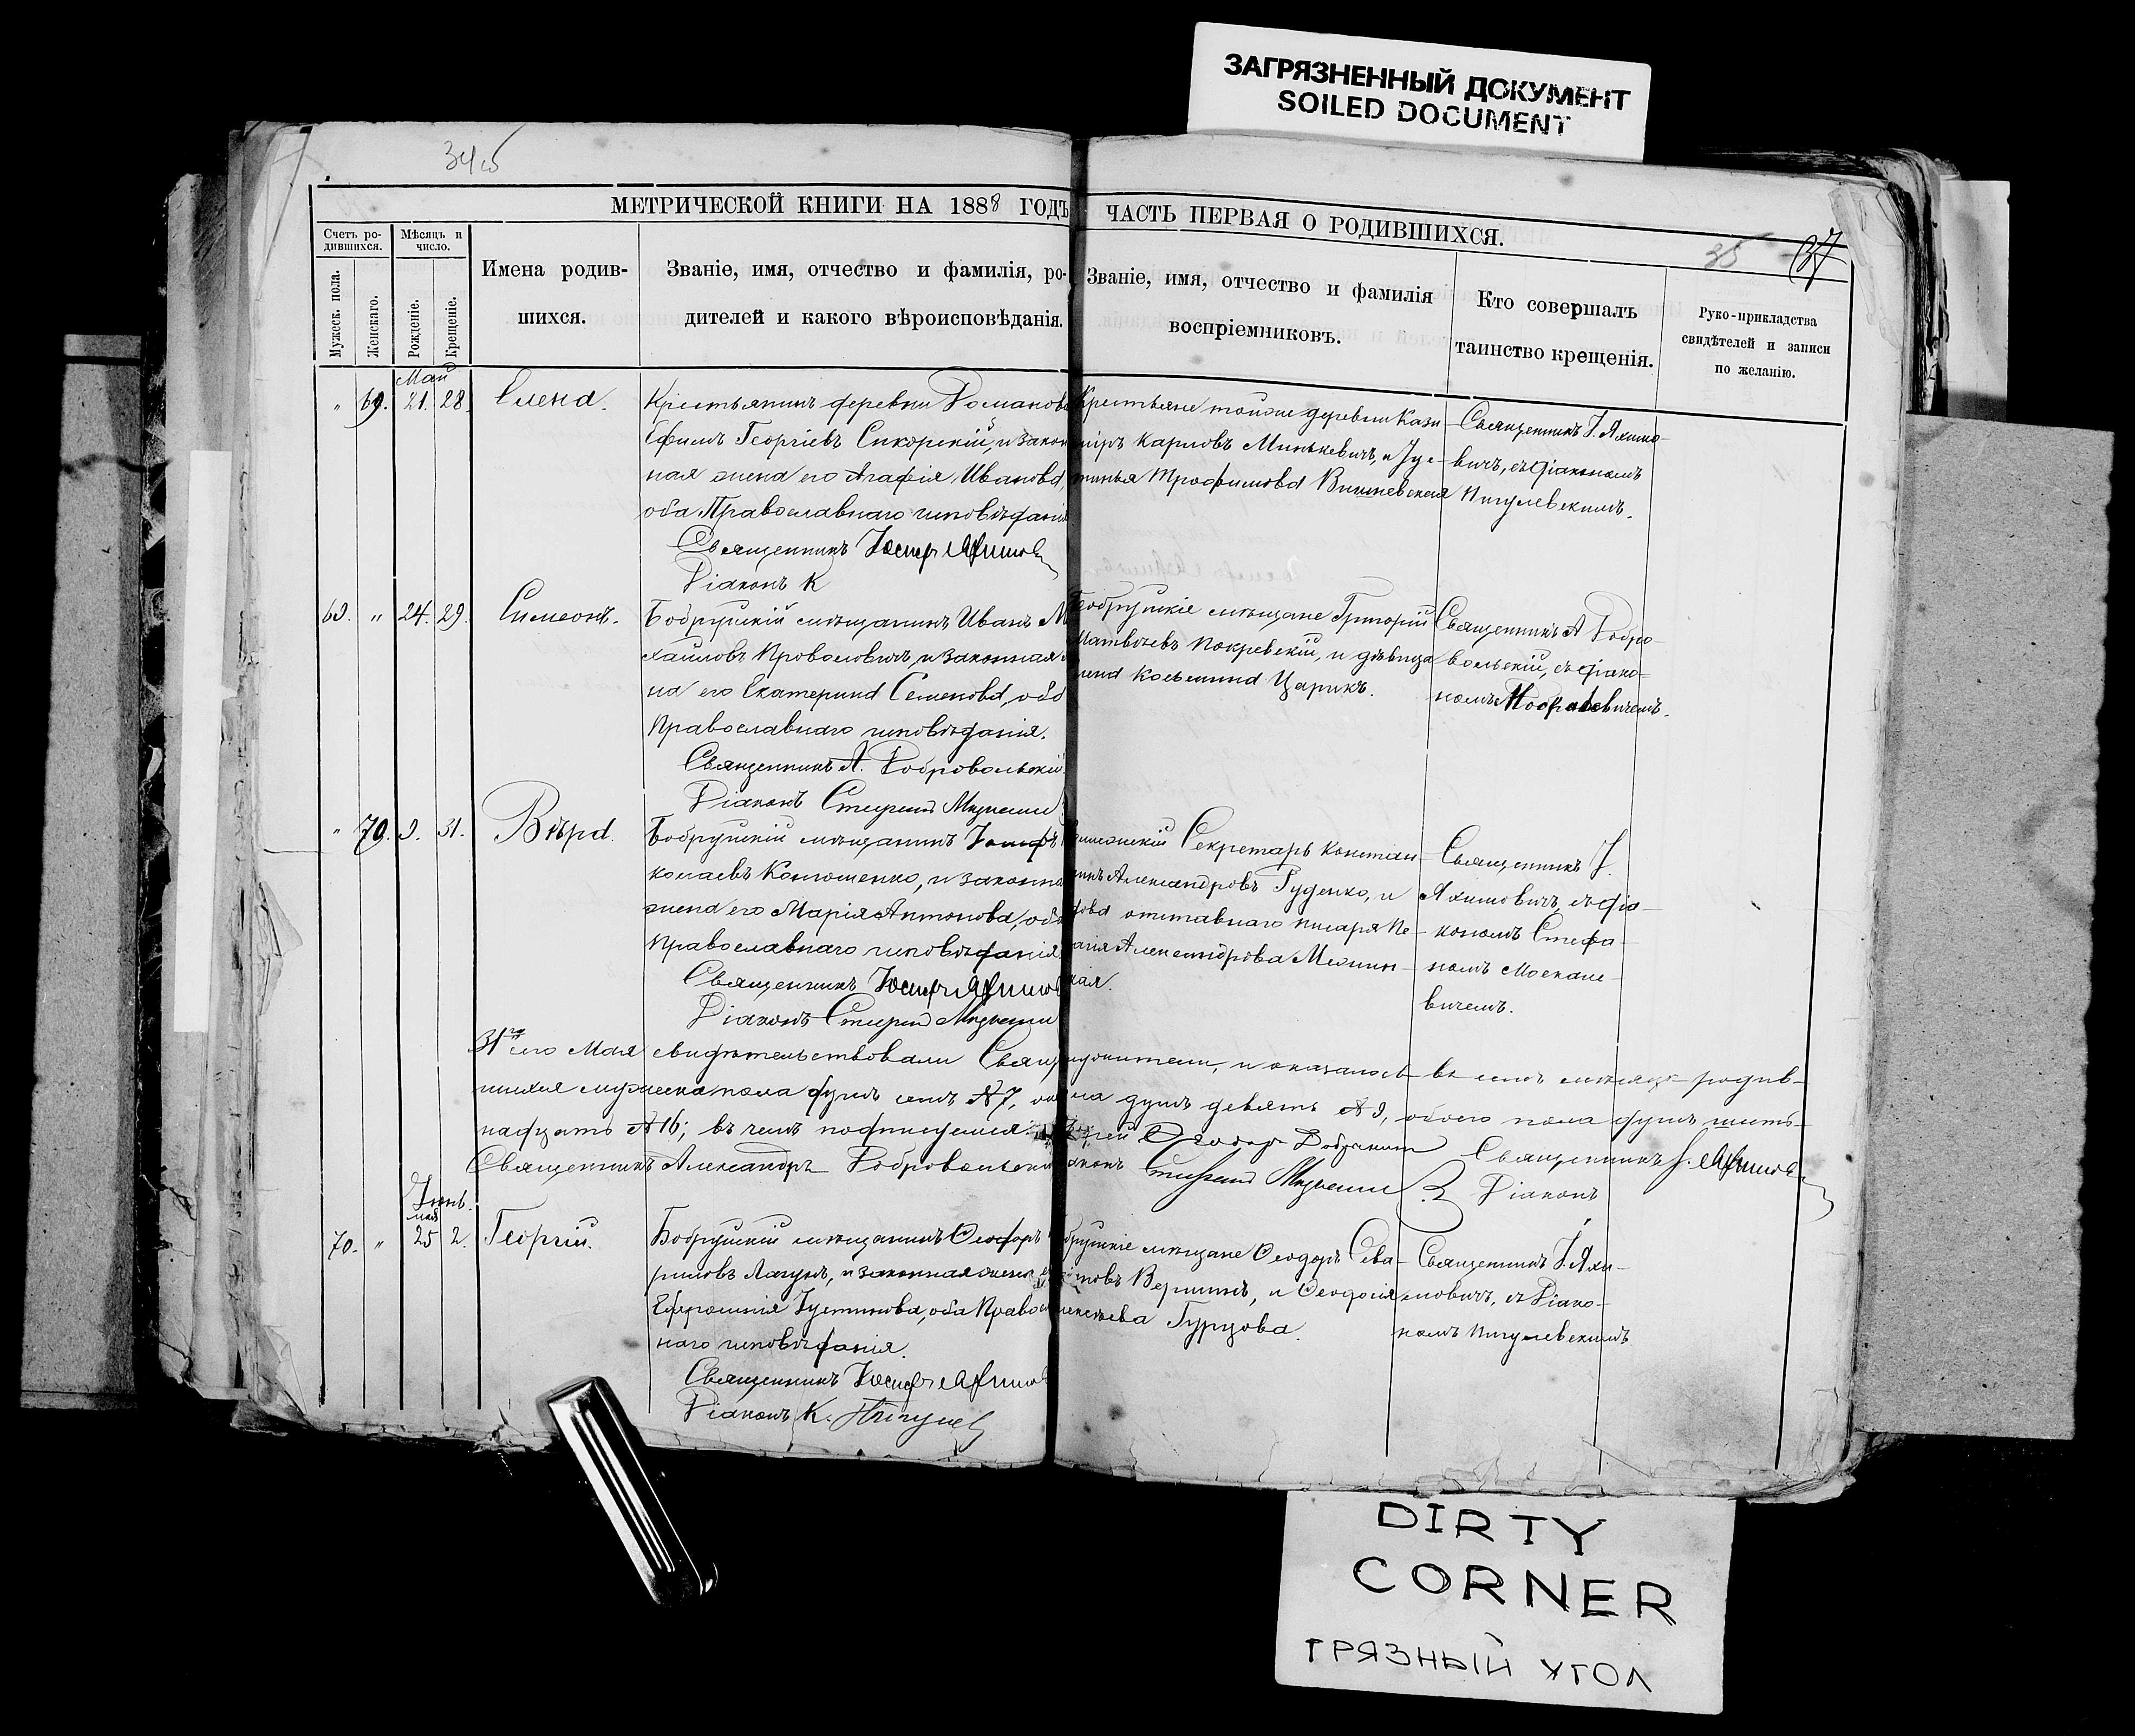 ЗАГРЯЗНЕННЫЙ ДОКУМЕНТ
SOILED DOCUMENT
МЕТРИЧЕСКОЙ КНИГИ НА 1888 ГОДЪ
ЧАСТЬ ПЕРВАЯ О РОДИВШИХСЯ.
35 37
Счетъ ро-
дившихся.
Мѣсяцъ и
число.
Мужеск. пола.
Женскаго.
Рожденіе.
Крещеніе.
Имена родив-
шихся.
Званіе, имя, отчество и фамилія, ро-
дителей и какого вѣроисповѣданія.
Званіе, имя, отчество и фамилія
воспріемниковъ.
Кто совершалъ
таинство крещенія.
Руко-прикладства
свидѣтелей и записи
по желанію.
Май
" 69. 21. 28. Елена.
Крестьянинъ деревни Романов
Ефимъ Георгіевъ Сикорскій, и закон
ная жена его Агафія Иванова,
оба Православнаго исповѣданія
Священникъ Іосифъ Яхимов
Діаконъ К
Крестьяне тойже деревни Кази
міръ Карловъ Минькевичъ, и Іус-
тинья Трофимова Вишневская
Священникъ І. Яхимо-
вичъ, съ діакономъ
Пигулевскимъ.
69. " 24. 29. Симеонъ.
Бобруйскій мѣщанинъ Иванъ М
хайловъ Проволовичъ, и законная
на его Екатерина Семенова, оба
Православнаго исповѣданія.
Священникъ А. Добровольскій
Діаконъ Стефанъ
Бобруйскіе мѣщане Григорій
Матвѣевъ Покревскій, и дѣвица
лена Косьмина Царикъ.
Священникъ А Добро-
вольскій, съ діако-
номъ
" 70. 9. 31. Вѣра.
Бобруйскій мѣщанинъ Іосифъ
колаевъ Конюшенко, и законна
жена его Марія Антонова, оба
Православнаго исповѣданія
Священникъ Іосифъ Яхимов
Діаконъ Стефанъ
Секретарь Констан-
инъ Александровъ Руденко, и
дова отставнаго писаря Пе-
Александрова
кая.
Священникъ І.
Яхимовичъ, съ діа-
кономъ Стефа-
номъ Москале-
вичемъ.
31го Мая свидѣтельствовали Свящ нослители, и оказалось въ семъ мѣсяцѣ родив-
шихся мужеска пола душъ семь № 7, ла душъ девять № 9, обоего пола душъ шест-
надцать № 16; въ чемъ подписуемся: рей Ѳеодоръ Священникъ І. Яхимов
Священникъ Александръ Добровольскій аконъ Стефанъ Діаконъ
Іюнь.
мая
70. " 25 2. Георгій.
Бобруйскій мѣщанинъ Ѳеодоръ
риловъ Лагунъ, и законная жена е
Ефросинія Іустинова, оба Правос
наго исповѣданія.
Священникъ Іосифъ Яхимов
Діаконъ К. Пигулев
бруйскіе мѣщане Ѳеодоръ Сева-
новъ Вершинъ, и Ѳеодосія
лексѣева Гурцова.
Священникъ І. Яхи-
мовичъ, съ Діако-
номъ Пигулевскимъ
DIRTY
CORNER
ГРЯЗНЫЙ УГОЛ